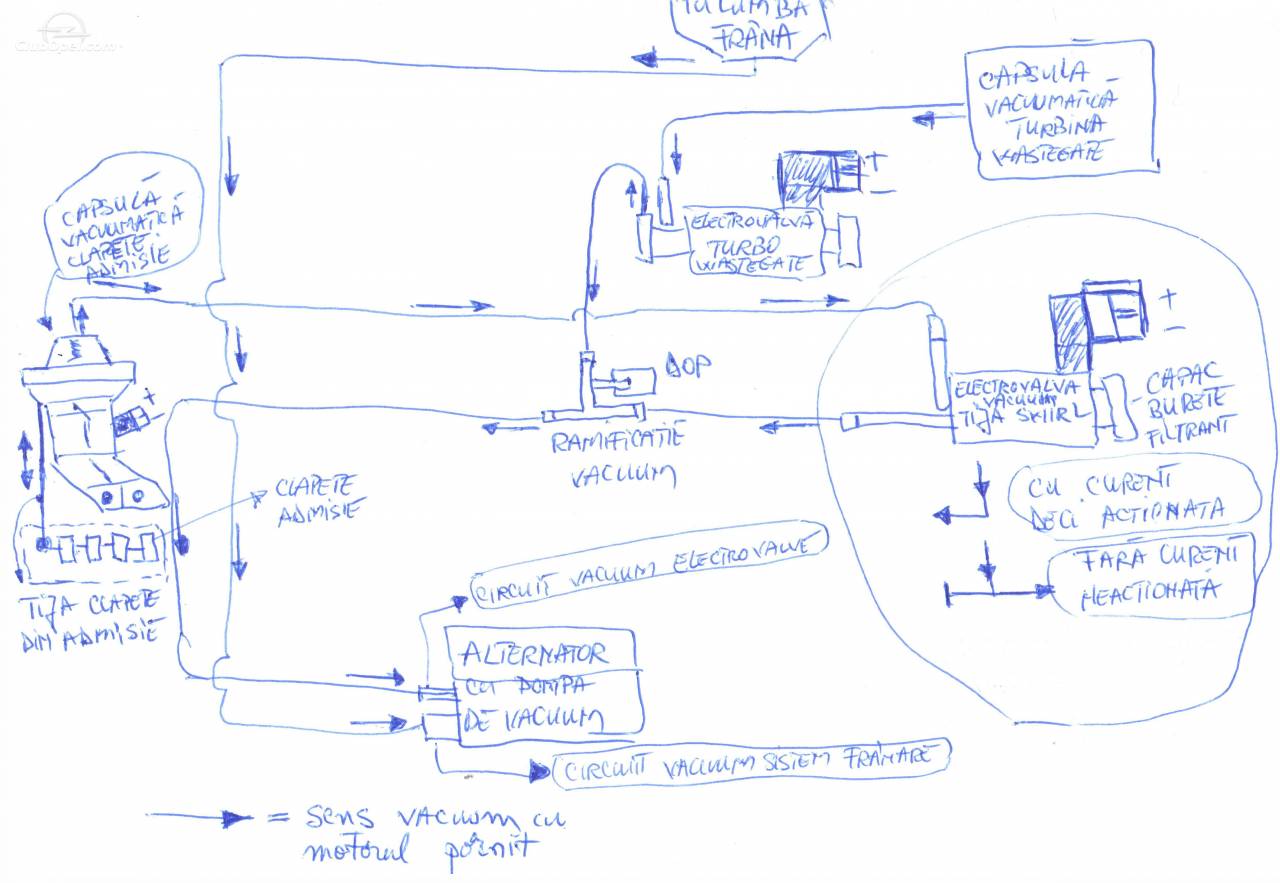 ClubOpel.com
TULUMBA
FRÂNA
CAPSULA
VACUUMATICĂ
TURBINA
WASTEGATE
+
−
ELECTROVALVĂ
TURBO
WASTEGATE
CAPSULĂ
VACUUMATICĂ
CLAPETE
ADMISIE
+
−
ELECTROVALVA
VACUUM
TIJA SKIIRL
CAPAC
BURETE
FILTRANT
DOP
RAMIFICATIE
VACUUM
+
−
CLAPETE
ADMISIE
CU CURENT
DECI ACTIONATA
FARĂ CURENT
NEACTIONATĂ
TIJA CLAPETE
DIN ADMISIE
CIRCUIT VACUUM ELECTROVALVE
ALTERNATOR
CU POMPA
DE VACUUM
CIRCUIT VACUUM SISTEM FRÂNARE
= sens vacuum cu
motorul pornit